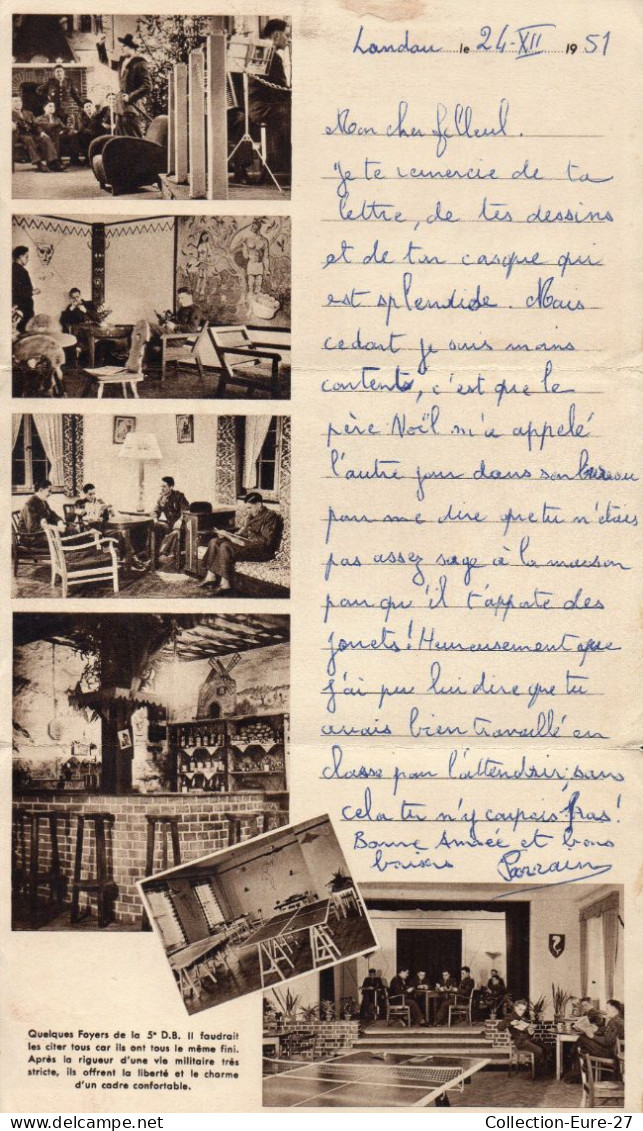 Landau le 24-XII 1951
Mon cher filleul.
Je te remercie de ta
lettre, de tes dessins
et de ton casque qui
est splendide. Mais
cedant je suis moins
content, c'est que le
père Noël m'a appelé
l'autre jour dans son bureau
pour me dire que tu n'étais
pas assez sage à la maison
pour qu'il t'apporte des
jouets! Heureusement que
j'ai pu lui dire que tu
avais bien travaillé en
classe pour l'attendrir, sans
cela tu n'y coupais pas!
Bonne Année et bons
baisers Parrain
Quelques Foyers de la 5e D.B. Il faudrait
les citer tous car ils ont tous le même fini.
Après la rigueur d'une vie militaire très
stricte, ils offrent la liberté et le charme
d'un cadre confortable.
Collection-Eure-27